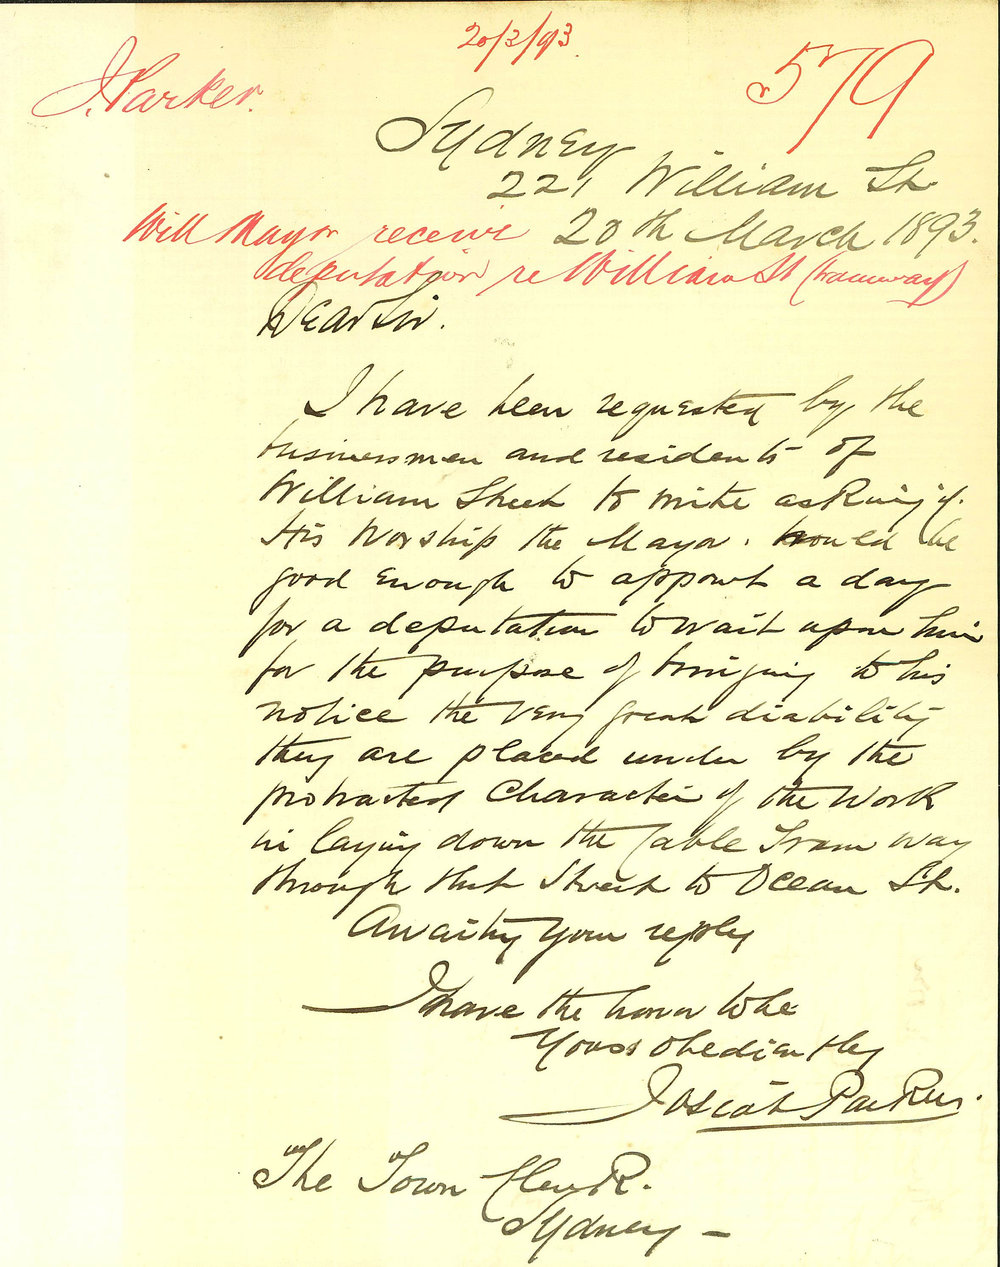 20/3/93
J. Parker.
579
Sydney
221 William St.
Will Mayor receive
20th March 1893.
deputation re William St (tramway)
Dear Sir.
I have been requested by the
businessmen and residents of
William Street to write asking if
His Worship the Mayor. would be
good enough to appoint a day
for a deputation to wait upon him
for the purpose of bringing to his
notice the very great disability
they are placed under by the
protracted character of the work
in laying down the Cable Tram way
through that Street to Ocean St.
Awaiting your reply
I have the honor to be
Yours obediently
Josiah Parker.
The Town Clerk.
Sydney –